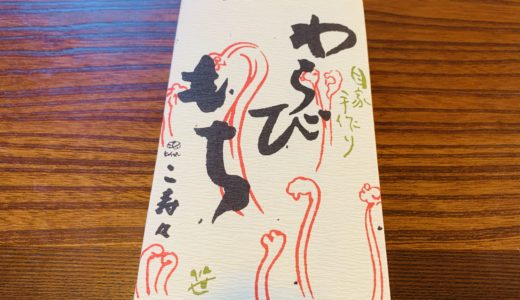 自家
手作り
わらび
もち
こ寿々
笹